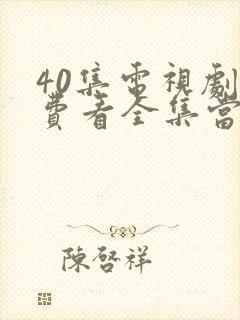 40集電視劇
費看全集當
陳啓祥